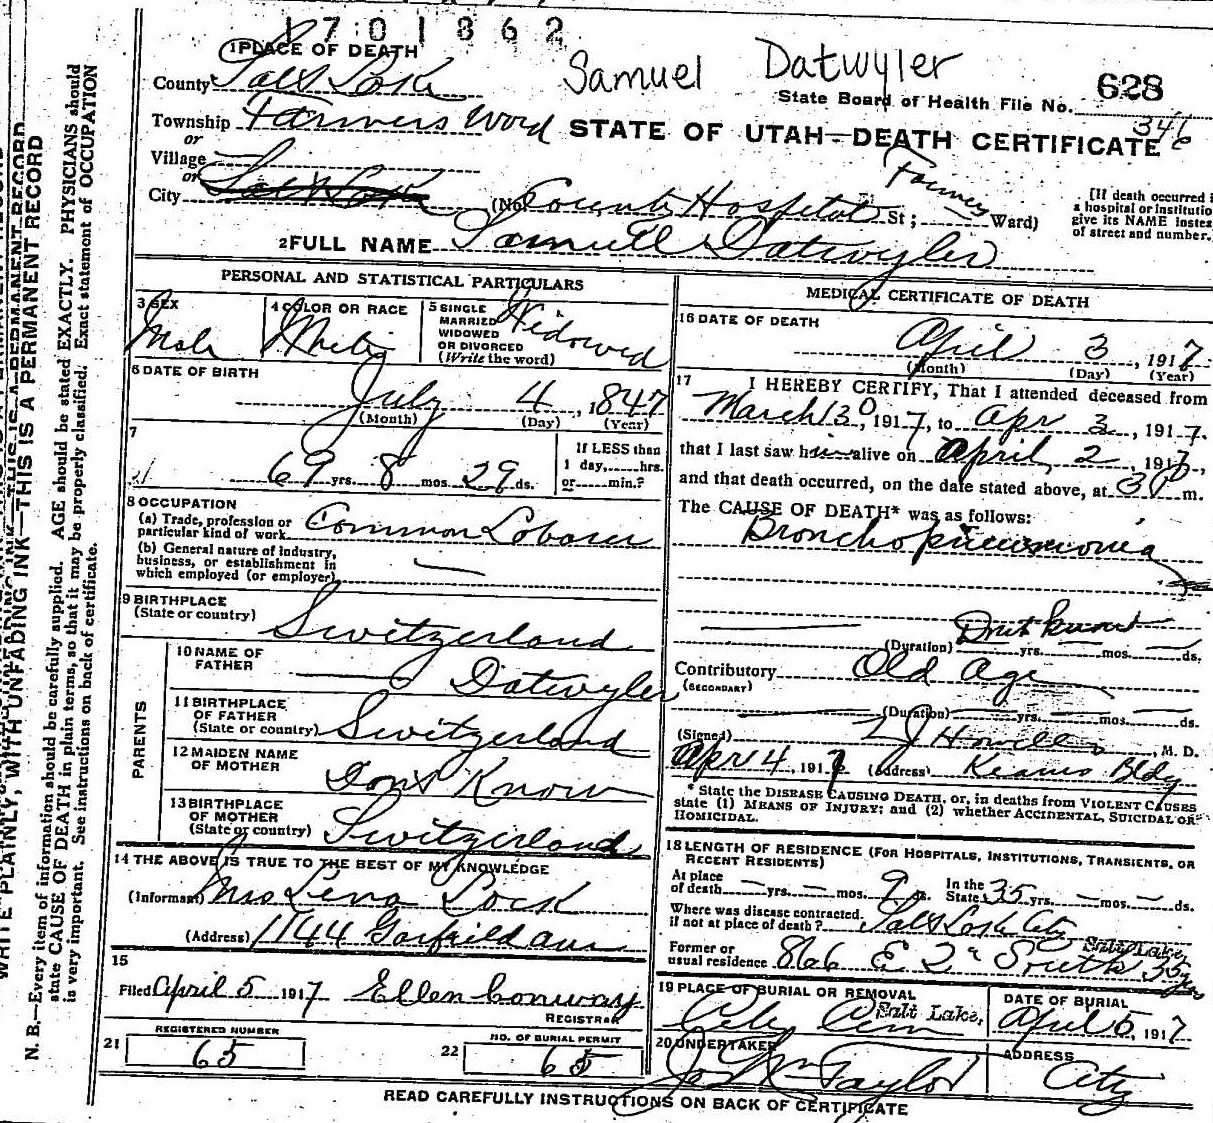 1701362
Samuel Datwyler
1 PLACE OF DEATH
County Salt Lake
State Board of Health File No. 628
346
Township Farmers Ward
STATE OF UTAH—DEATH CERTIFICATE
or
Village
or
City Salt Lake (No. County Hospital St; Farmers Ward)
[If death occurred i
a hospital or institutio
give its NAME instea
of street and number.]
2 FULL NAME Samuel Datwyler
PERSONAL AND STATISTICAL PARTICULARS
3 SEX
Male
4 COLOR OR RACE
White
5 SINGLE
MARRIED
WIDOWED
OR DIVORCED
(Write the word)
Widowed
6 DATE OF BIRTH
July 4, 1847
(Month) (Day) (Year)
7
69 yrs. 8 mos. 29 ds.
If LESS than
1 day,......hrs.
or......min.?
8 OCCUPATION
(a) Trade, profession or
particular kind of work Common Laborer
(b) General nature of industry,
business, or establishment in
which employed (or employer)
9 BIRTHPLACE
(State or country) Switzerland
PARENTS
10 NAME OF
FATHER
Datwyler
11 BIRTHPLACE
OF FATHER
(State or country) Switzerland
12 MAIDEN NAME
OF MOTHER
Dont Know
13 BIRTHPLACE
OF MOTHER
(State or country) Switzerland
14 THE ABOVE IS TRUE TO THE BEST OF MY KNOWLEDGE
(Informant) Mrs Lena Lock
(Address) 1144 Garfield ave
15
Filed April 5 1917 Ellen Conway
REGISTRAR
21 REGISTERED NUMBER
65
22 NO. OF BURIAL PERMIT
65
MEDICAL CERTIFICATE OF DEATH
16 DATE OF DEATH
April 3, 1917
(Month) (Day) (Year)
17 I HEREBY CERTIFY, That I attended deceased from
March 30, 1917, to Apr 3, 1917.
that I last saw him alive on April 2, 1917,
and that death occurred, on the date stated above, at m.
The CAUSE OF DEATH* was as follows:
Bronchopneumonia
Dont know
(Duration) yrs. mos. ds.
Contributory Old Age
(SECONDARY)
(Duration) yrs. mos. ds.
(Signed) Howells, M. D.
Apr 4, 1917 (Address) Kearns Bldg
* State the DISEASE CAUSING DEATH, or, in deaths from VIOLENT CAUSES
state (1) MEANS OF INJURY; and (2) whether ACCIDENTAL, SUICIDAL OR
HOMICIDAL.
18 LENGTH OF RESIDENCE (FOR HOSPITALS, INSTITUTIONS, TRANSIENTS, OR
RECENT RESIDENTS)
At place
of death yrs. mos. 9 In the
State 35 yrs. mos. ds.
Where was disease contracted,
if not at place of death? Salt Lake City
Former or
usual residence 866 E 2d South Salt Lake, 35 yrs
19 PLACE OF BURIAL OR REMOVAL
City Cem Salt Lake,
DATE OF BURIAL
April 5, 1917
20 UNDERTAKER
Taylor
ADDRESS
City
READ CAREFULLY INSTRUCTIONS ON BACK OF CERTIFICATE
WRITE PLAINLY, WITH UNFADING INK—THIS IS A PERMANENT RECORD
N. B.—Every item of information should be carefully supplied. AGE should be stated EXACTLY. PHYSICIANS should
state CAUSE OF DEATH in plain terms, so that it may be properly classified. Exact statement of OCCUPATION
is very important. See instructions on back of certificate.